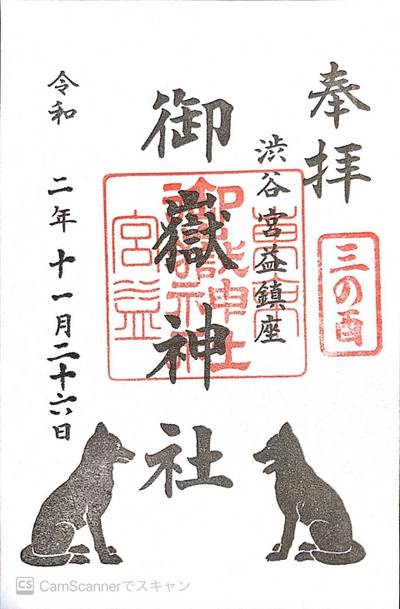 奉拝
三の酉
渋谷宮益鎮座
御嶽神社
御嶽神社
宮益
令和 二年十一月二十六日
CS CamScannerでスキャン